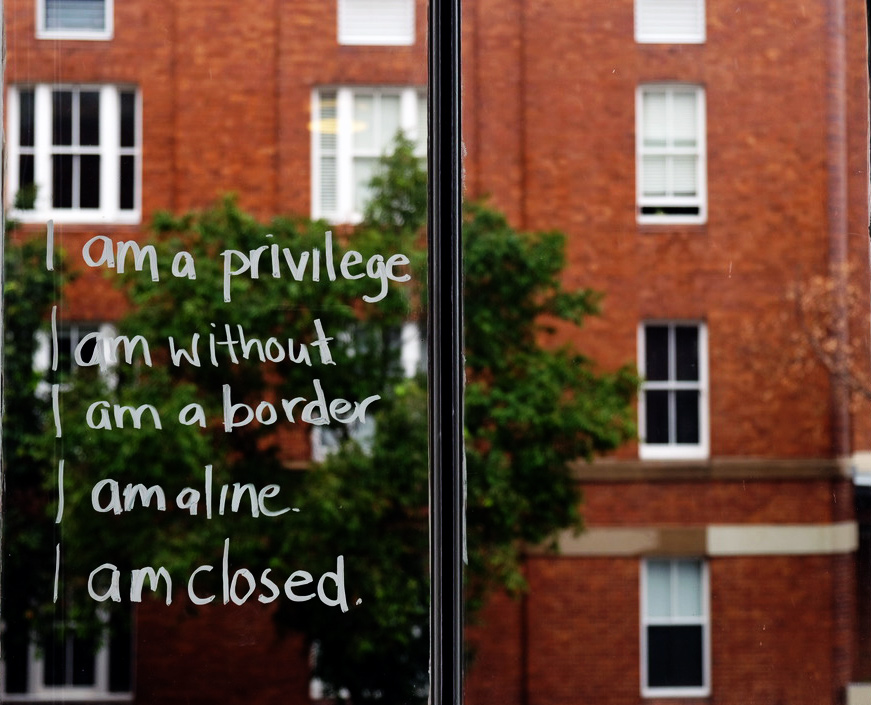 I am a privilege
I am without
I am a border
I am a line.
I am closed.